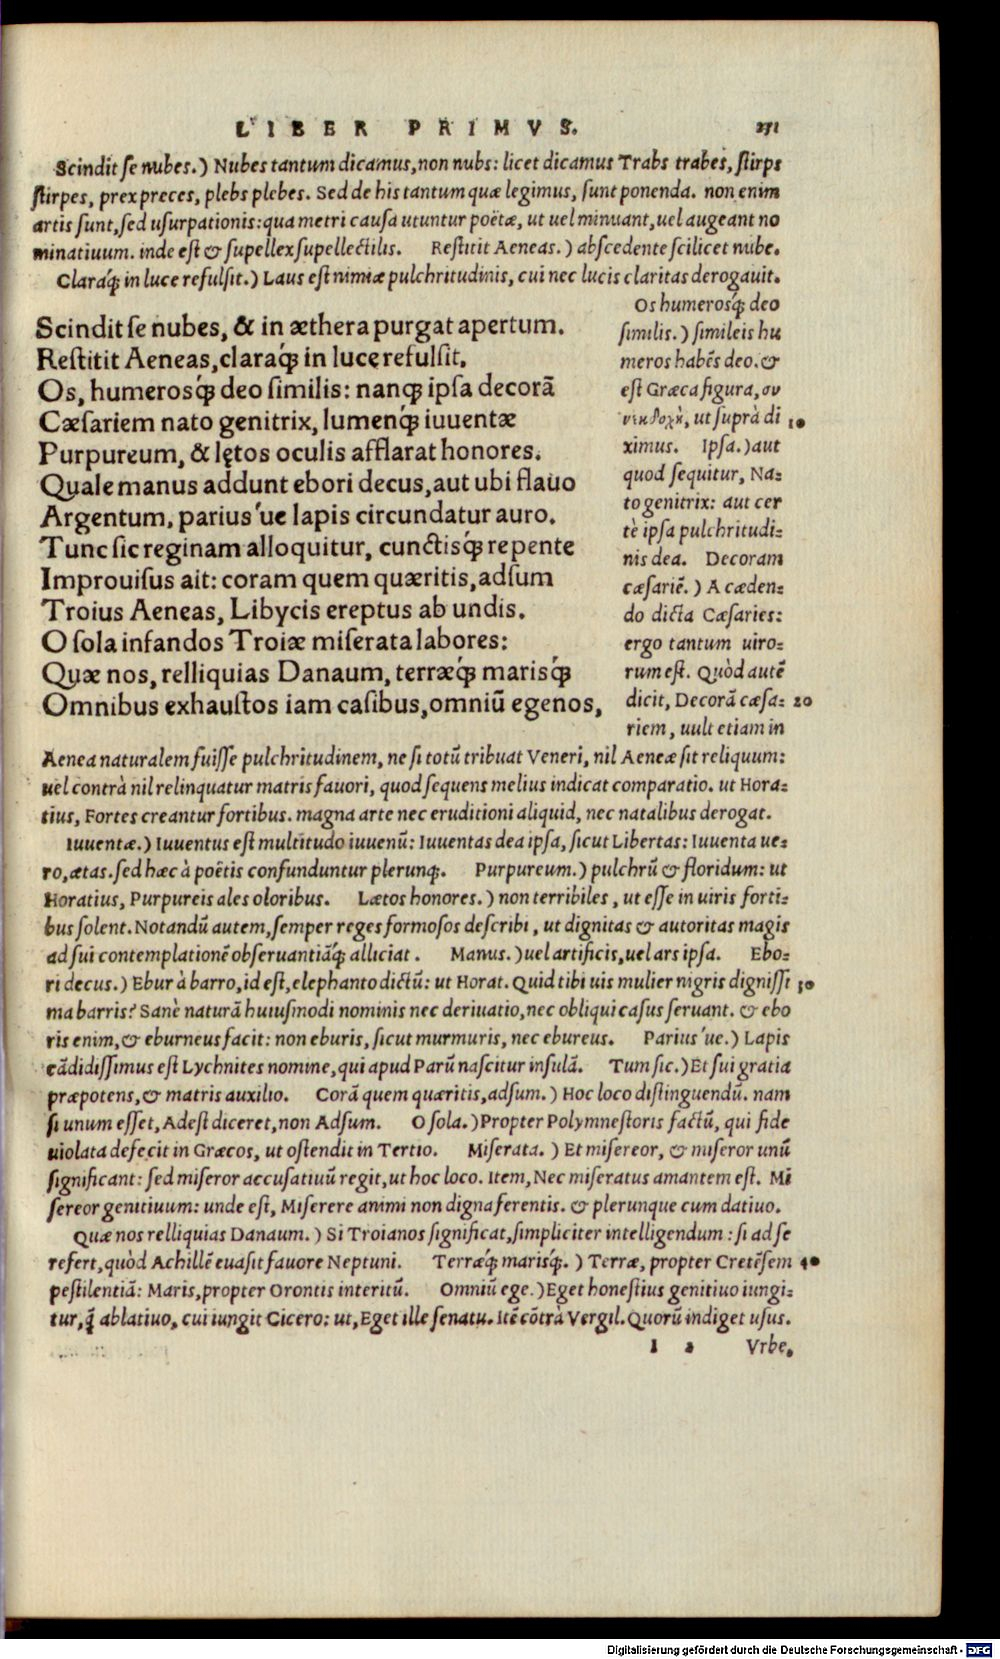 LIBER PRIMVS. 131
Scindit ſe nubes.) Nubes tantum dicamus, non nubs: licet dicamus Trabs trabes, ſtirps
ſtirpes, prex preces, plebs plebes. Sed de his tantum quæ legimus, ſunt ponenda. non enim
artis ſunt, ſed uſurpationis: qua metri cauſa utuntur poëtæ, ut uel minuant, uel augeant no
minatiuum. inde eſt & ſupellex ſupellectilis. Reſtitit Aeneas.) abſcedente ſcilicet nube.
Claraq́; in luce refulſit.) Laus eſt nimiæ pulchritudinis, cui nec lucis claritas derogauit.
Scindit ſe nubes, & in æthera purgat apertum.
Reſtitit Aeneas, claraq́; in luce refulſit,
Os, humerosq́; deo ſimilis: nanq; ipſa decorā
Cæſariem nato genitrix, lumenq́; iuuentæ
Purpureum, & lętos oculis afflarat honores.
Quale manus addunt ebori decus, aut ubi flauo
Argentum, parius'ue lapis circundatur auro.
Tunc ſic reginam alloquitur, cunctisq́; repente
Improuiſus ait: coram quem quæritis, adſum
Troius Aeneas, Libycis ereptus ab undis.
O ſola infandos Troiæ miſerata labores:
Quæ nos, relliquias Danaum, terræq́; marisq́;
Omnibus exhauſtos iam caſibus, omniū egenos,
Os humerosq́; deo
ſimilis.) ſimileis hu
meros habēs deo. &
eſt Græca figura, συ
νεκδοχὴ, ut ſuprà di 10
ximus. Ipſa.) aut
quod ſequitur, Na-
to genitrix: aut cer
tè ipſa pulchritudi-
nis dea. Decoram
cæſariē.) A cæden-
do dicta Cæſaries:
ergo tantum uiro-
rum eſt. Quòd autē
dicit, Decorā cæſa- 20
riem, uult etiam in
Aenea naturalem fuiſſe pulchritudinem, ne ſi totū tribuat Veneri, nil Aeneæ ſit reliquum:
uel contrà nil relinquatur matris fauori, quod ſequens melius indicat comparatio. ut Hora-
tius, Fortes creantur fortibus. magna arte nec eruditioni aliquid, nec natalibus derogat.
Iuuentæ.) Iuuentus eſt multitudo iuuenū: Iuuentas dea ipſa, ſicut Libertas: Iuuenta ue-
ro, ætas. ſed hæc à poëtis confunduntur plerunq;. Purpureum.) pulchrū & floridum: ut
Horatius, Purpureis ales oloribus. Lætos honores.) non terribiles, ut eſſe in uiris forti-
bus ſolent. Notandū autem, ſemper reges formoſos deſcribi, ut dignitas & autoritas magis
ad ſui contemplationē obſeruantiāq́; alliciat. Manus.) uel artificis, uel ars ipſa. Ebo-
ri decus.) Ebur à barro, id eſt, elephanto dictū: ut Horat. Quid tibi uis mulier nigris digniſſi 30
ma barris? Sanè naturā huiuſmodi nominis nec deriuatio, nec obliqui caſus ſeruant. & ebo
ris enim, & eburneus facit: non eburis, ſicut murmuris, nec ebureus. Parius'ue.) Lapis
cādidiſſimus eſt Lychnites nomine, qui apud Parū naſcitur inſulā. Tum ſic.) Et ſui gratia
præpotens, & matris auxilio. Corā quem quæritis, adſum.) Hoc loco diſtinguendū. nam
ſi unum eſſet, Adeſt diceret, non Adſum. O ſola.) Propter Polymneſtoris factū, qui fide
uiolata defecit in Græcos, ut oſtendit in Tertio. Miſerata.) Et miſereor, & miſeror unū
ſignificant: ſed miſeror accuſatiuū regit, ut hoc loco. Item, Nec miſeratus amantem eſt. Mi
ſereor genitiuum: unde eſt, Miſerere animi non digna ferentis. & plerunque cum datiuo.
Quæ nos relliquias Danaum.) Si Troianos ſignificat, ſimpliciter intelligendum: ſi ad ſe
refert, quòd Achillē euaſit fauore Neptuni. Terræq́; marisq́;.) Terræ, propter Cretēſem 40
peſtilentiā: Maris, propter Orontis interitū. Omniū ege.) Eget honeſtius genitiuo iungi-
tur, q̄ ablatiuo, cui iungit Cicero: ut, Eget ille ſenatu. Itē cōtrà Vergil. Quorū indiget uſus.
l 2 Vrbe,
Digitalisierung gefördert durch die Deutsche Forschungsgemeinschaft - DFG